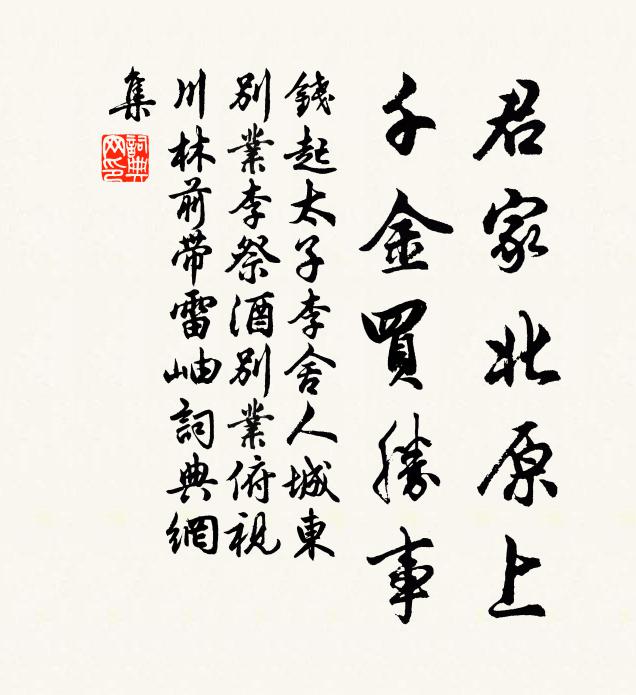 君家北原上
千金買勝事
錢起太子李舍人城東
別業李祭酒別業俯視
川林前帶雷岫詞典網
集
詞典
網印